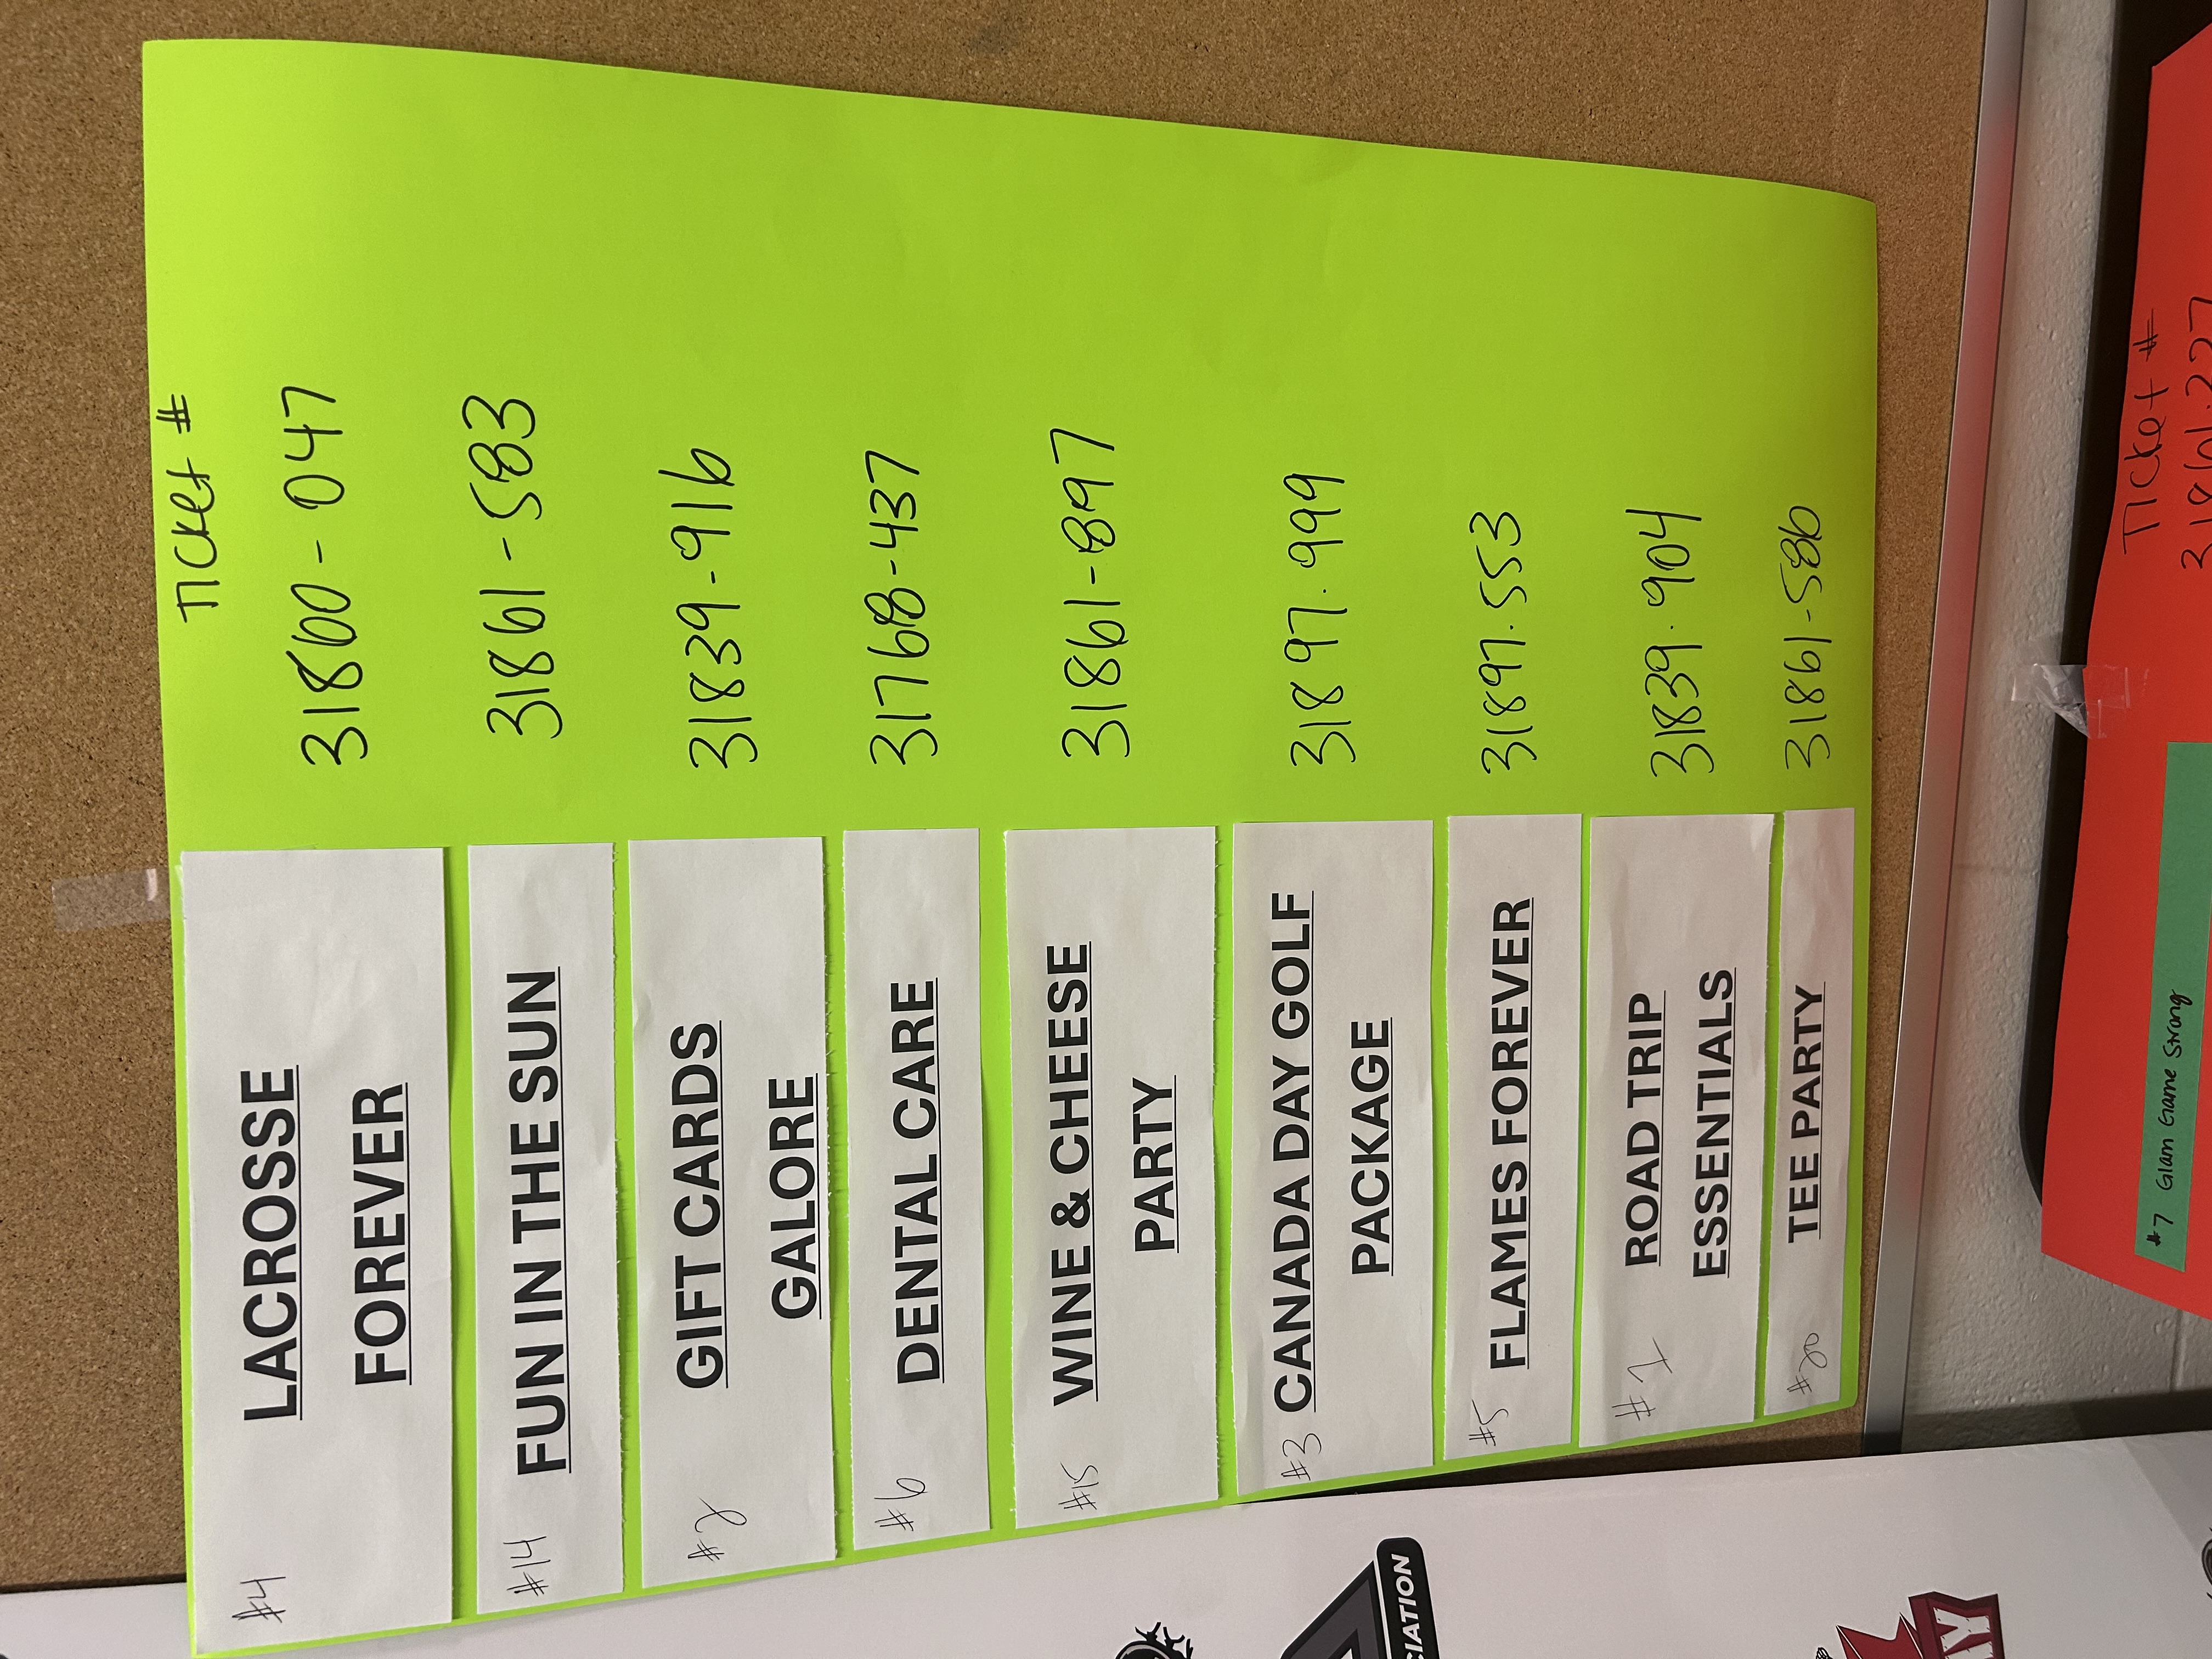 Ticket #
#4 LACROSSE
FOREVER
31860-047
#14 FUN IN THE SUN
31861-583
#2 GIFT CARDS
GALORE
31839-916
#6 DENTAL CARE
31768-437
#15 WINE & CHEESE
PARTY
31861-897
#3 CANADA DAY GOLF
PACKAGE
31897.999
#5 FLAMES FOREVER
31897.553
#1 ROAD TRIP
ESSENTIALS
31839.904
#20 TEE PARTY
31861-586
Ticket #
#7 Glam Game Strong
CIATION